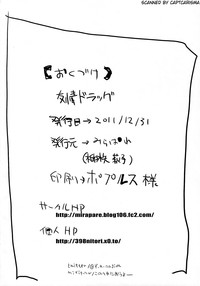 SCANNED BY CAPTCARISMA
【おくづけ】
発行日→2011/12/31
発行元→みらぱれ
印刷→ポプルス 様
サークルHP
http://mirapare.blog106.fc2.com/
個人HP
http://398nitori.x0.to/